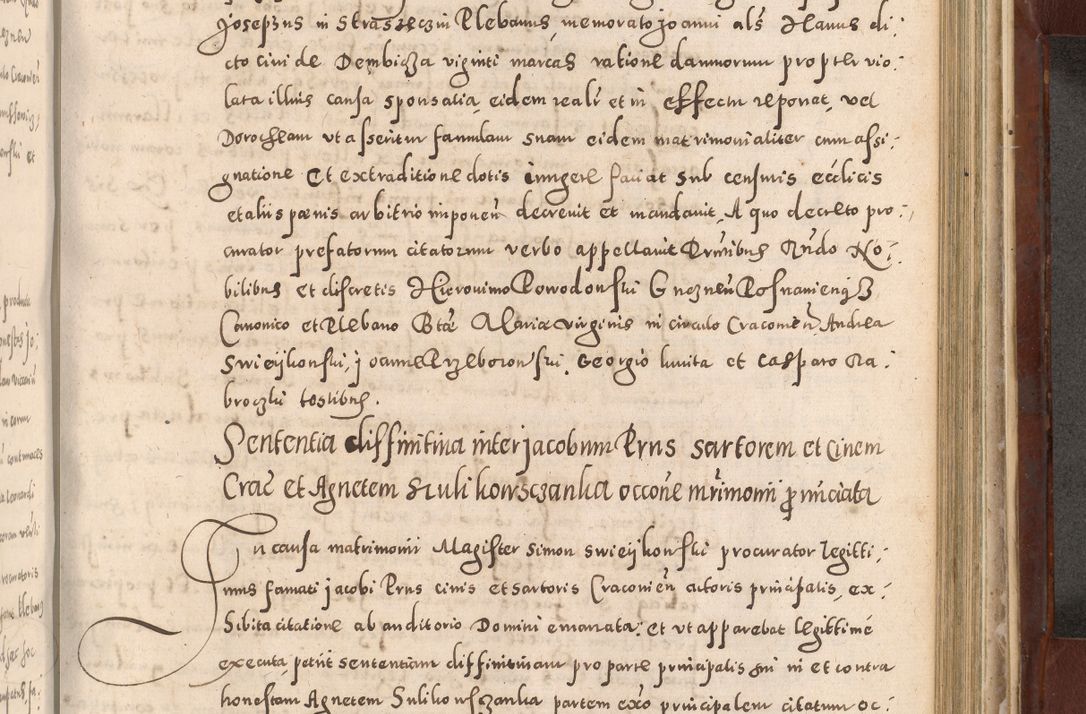 Josephus in Straszęczin Plebanus, memorato Joanni als Hanus di:
cto civi de Dembicza viginti marcas ratione damnorum propter vio:
lata illius causa sponsalia, eidem reali et in effectu reponet, vel
Dorotheam ut asseritur famulam suam eidem matrimonialiter cum assi:
gnatione et extraditione dotis iungere faciat sub censuris ecclicis
et aliis pœnis arbitrio imponen decrevit et mandavit, A quo decreto pro:
curator prefatorum citatorum verbo appellavit Pruntibus Rndo No:
bilibus et discretis Hieronimo Powodowski Gneznen Posnanien
Canonico et Plebano Btæ Mariæ virginis in circulo Cracovien Andrea
Swieijkowski, Joanne Przeborowski, Georgio luvita et Casparo Na:
broczki testibus.
Sententia diffinitiva inter Jacobum Prus sartorem et Civem
Crac et Agnetem Sulikowsczanka occone mrimonii pronunciata
In causa matrimonii Magister Simon Swieijkowski procurator legitti:
mus famati Jacobi Prus civis et sartoris Cracovien actoris principalis, ex:
hibita citatione ab auditorio Domini emanata, et ut apparebat legittime
executa, petiit sententiam diffinitivam pro parte principalis sui in et contra
honestam Agnetem Sulikowsczanka partem exto principalem citatum oc: